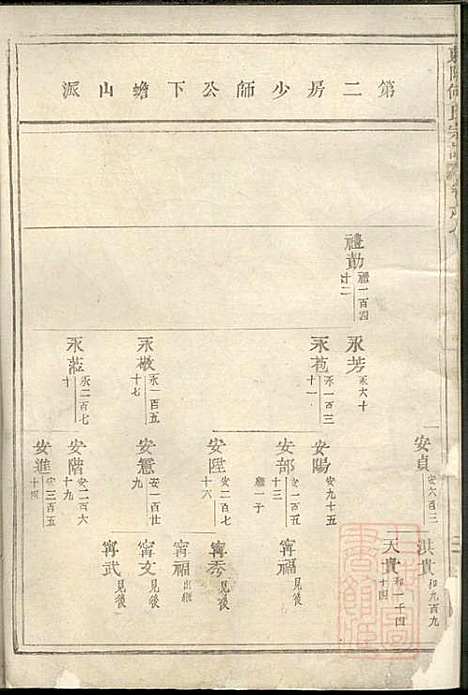 第二房少師公下蟾山派
禮勤 禮一百四十二
永芳 永六十
永苞 永一百三十一
永敬 永一百五十七
永蒞 永二百七十
安貞 安六百三
安陽 安九十五
安部 安一百五十三 繼一子
安陞 安二百七十六
安 安一百廿九
安階 安二百六十九
安進 安三百五十四
洪貴 和九百九
天貴 和一千四十四
寗福 見後
寗秀 見後
寗福 出繼
寗文 見後
寗武 見後